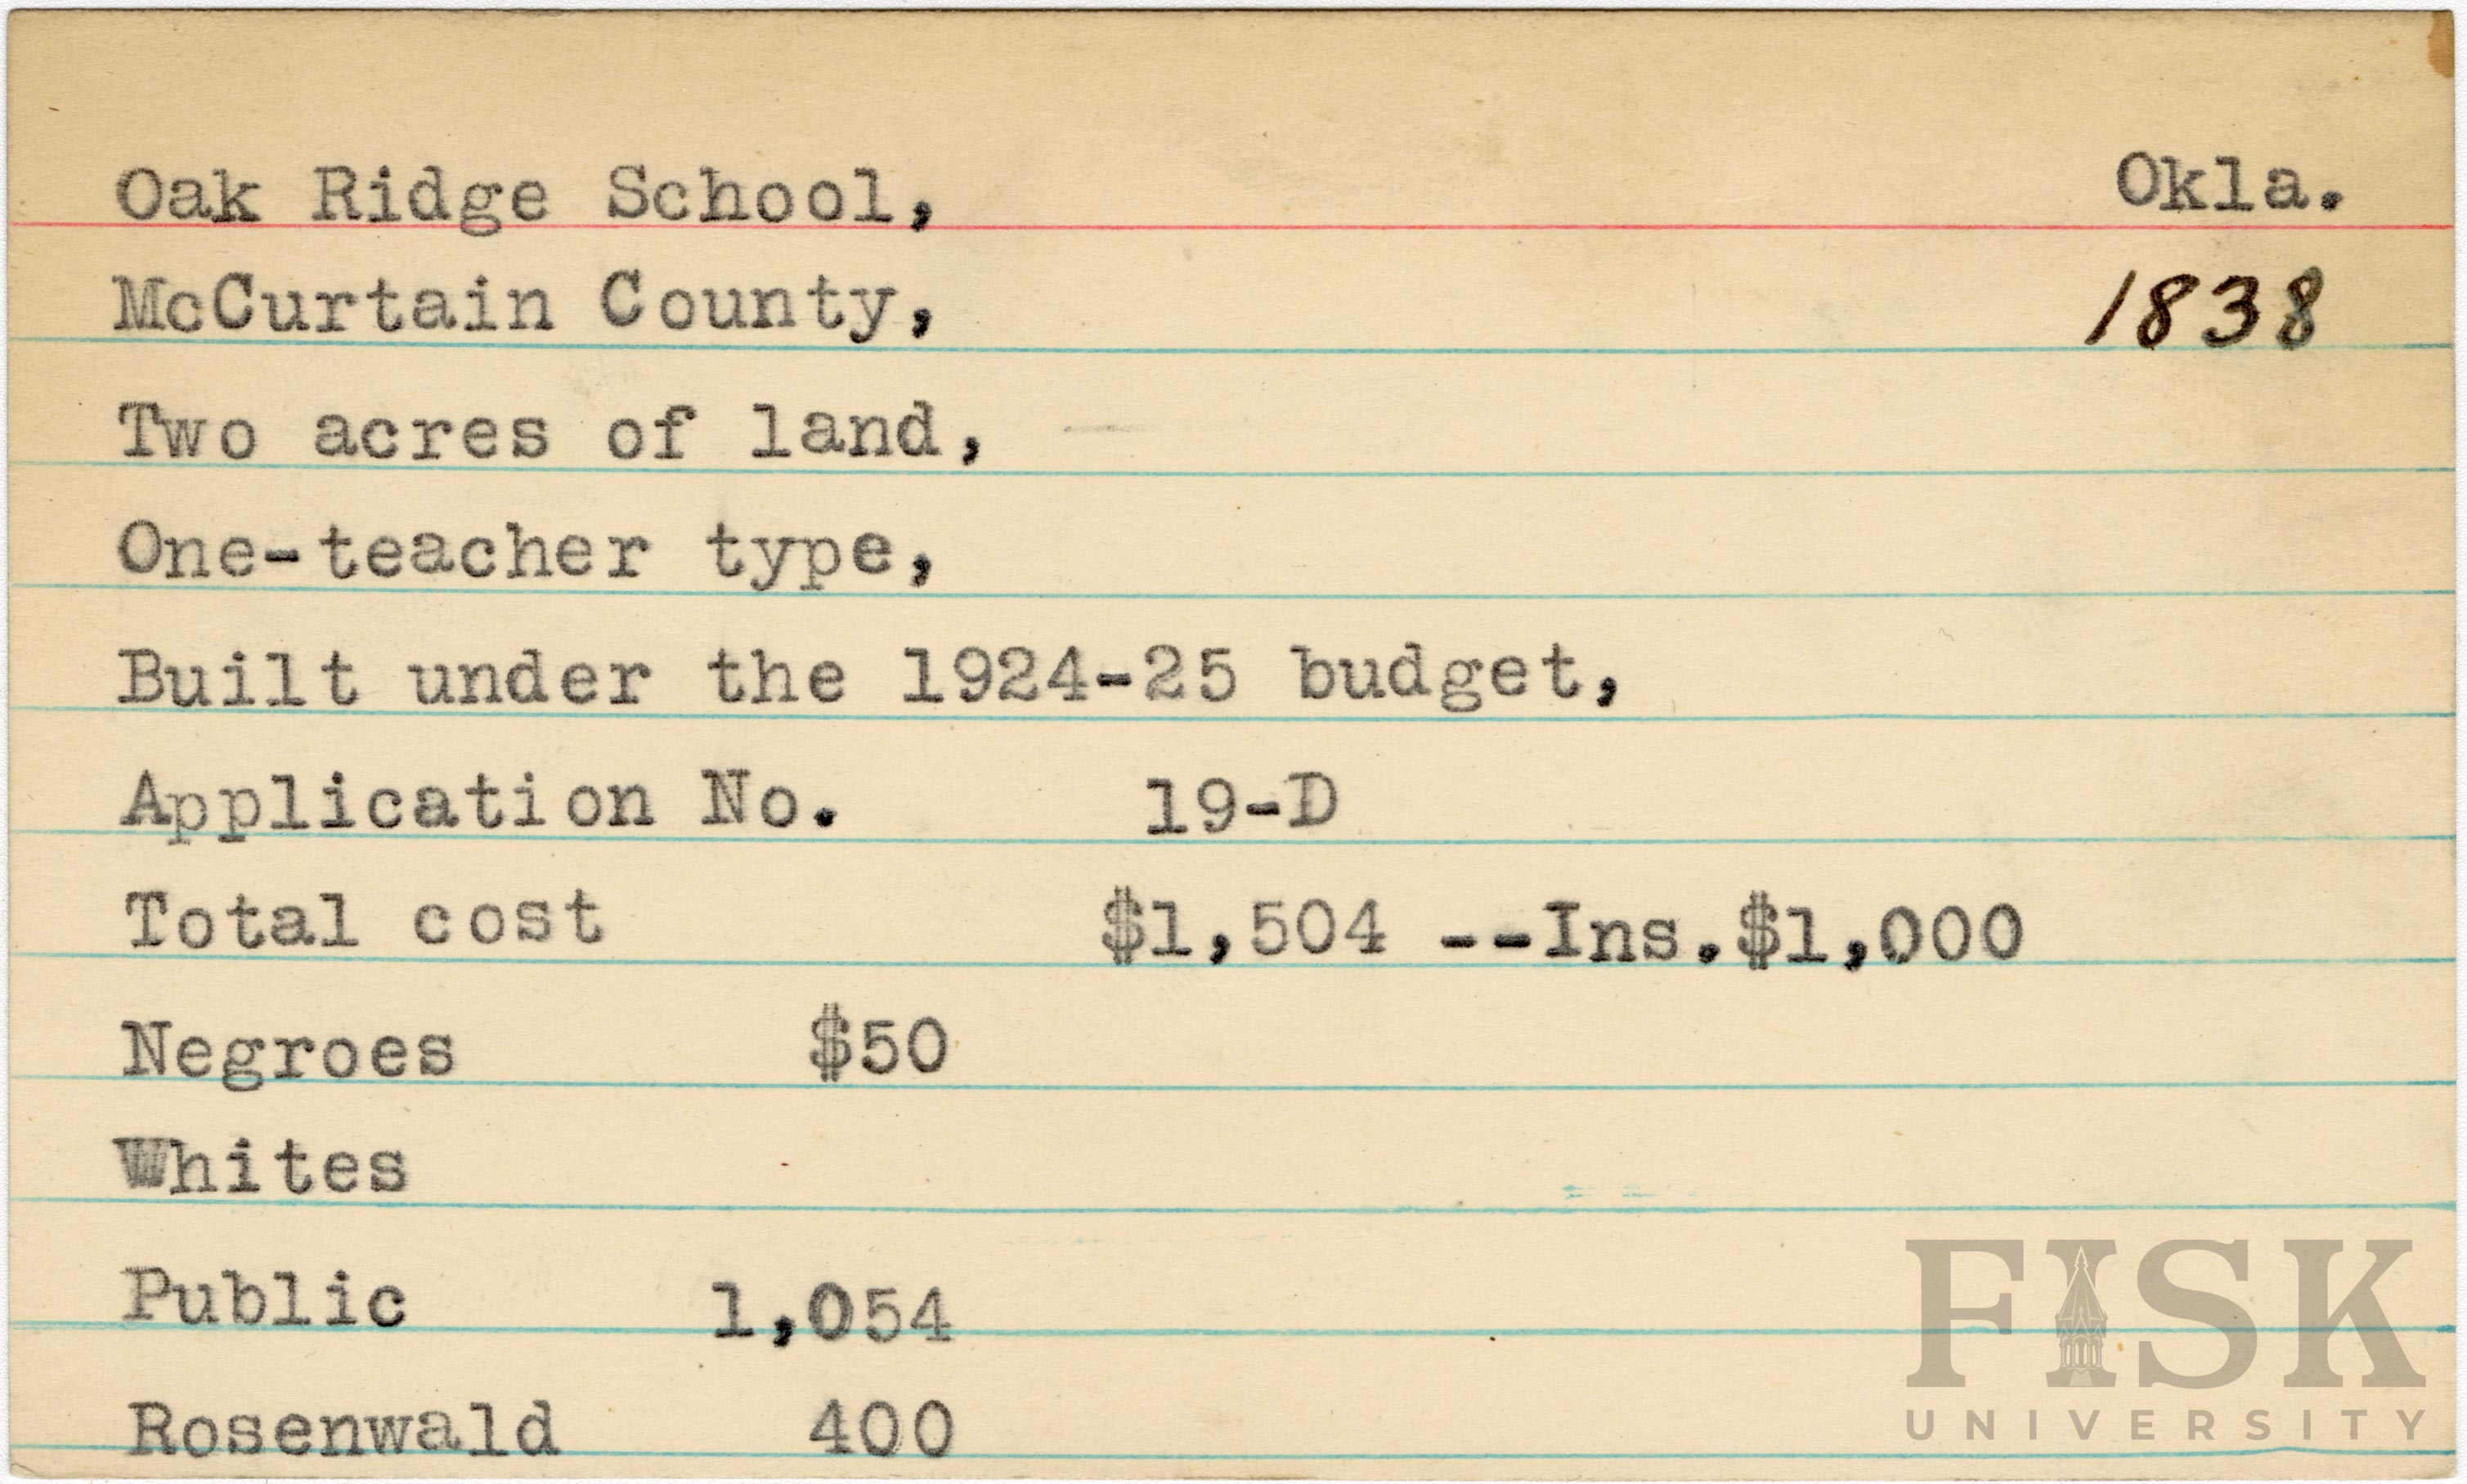 Oak Ridge School, Okla.
McCurtain County, 1838
Two acres of land,
One-teacher type,
Built under the 1924-25 budget,
Application No. 19-D
Total cost $1,504 --Ins.$1,000
Negroes $50
Whites
Public 1,054
Rosenwald 400
FISK
UNIVERSITY